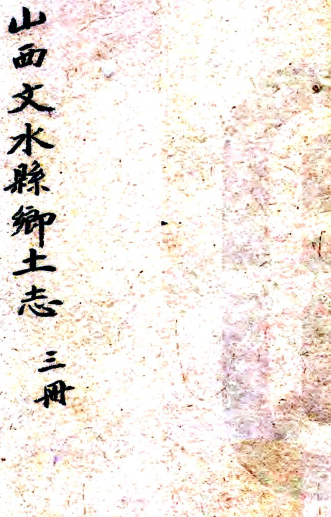 山西文水縣鄉土志 三冊